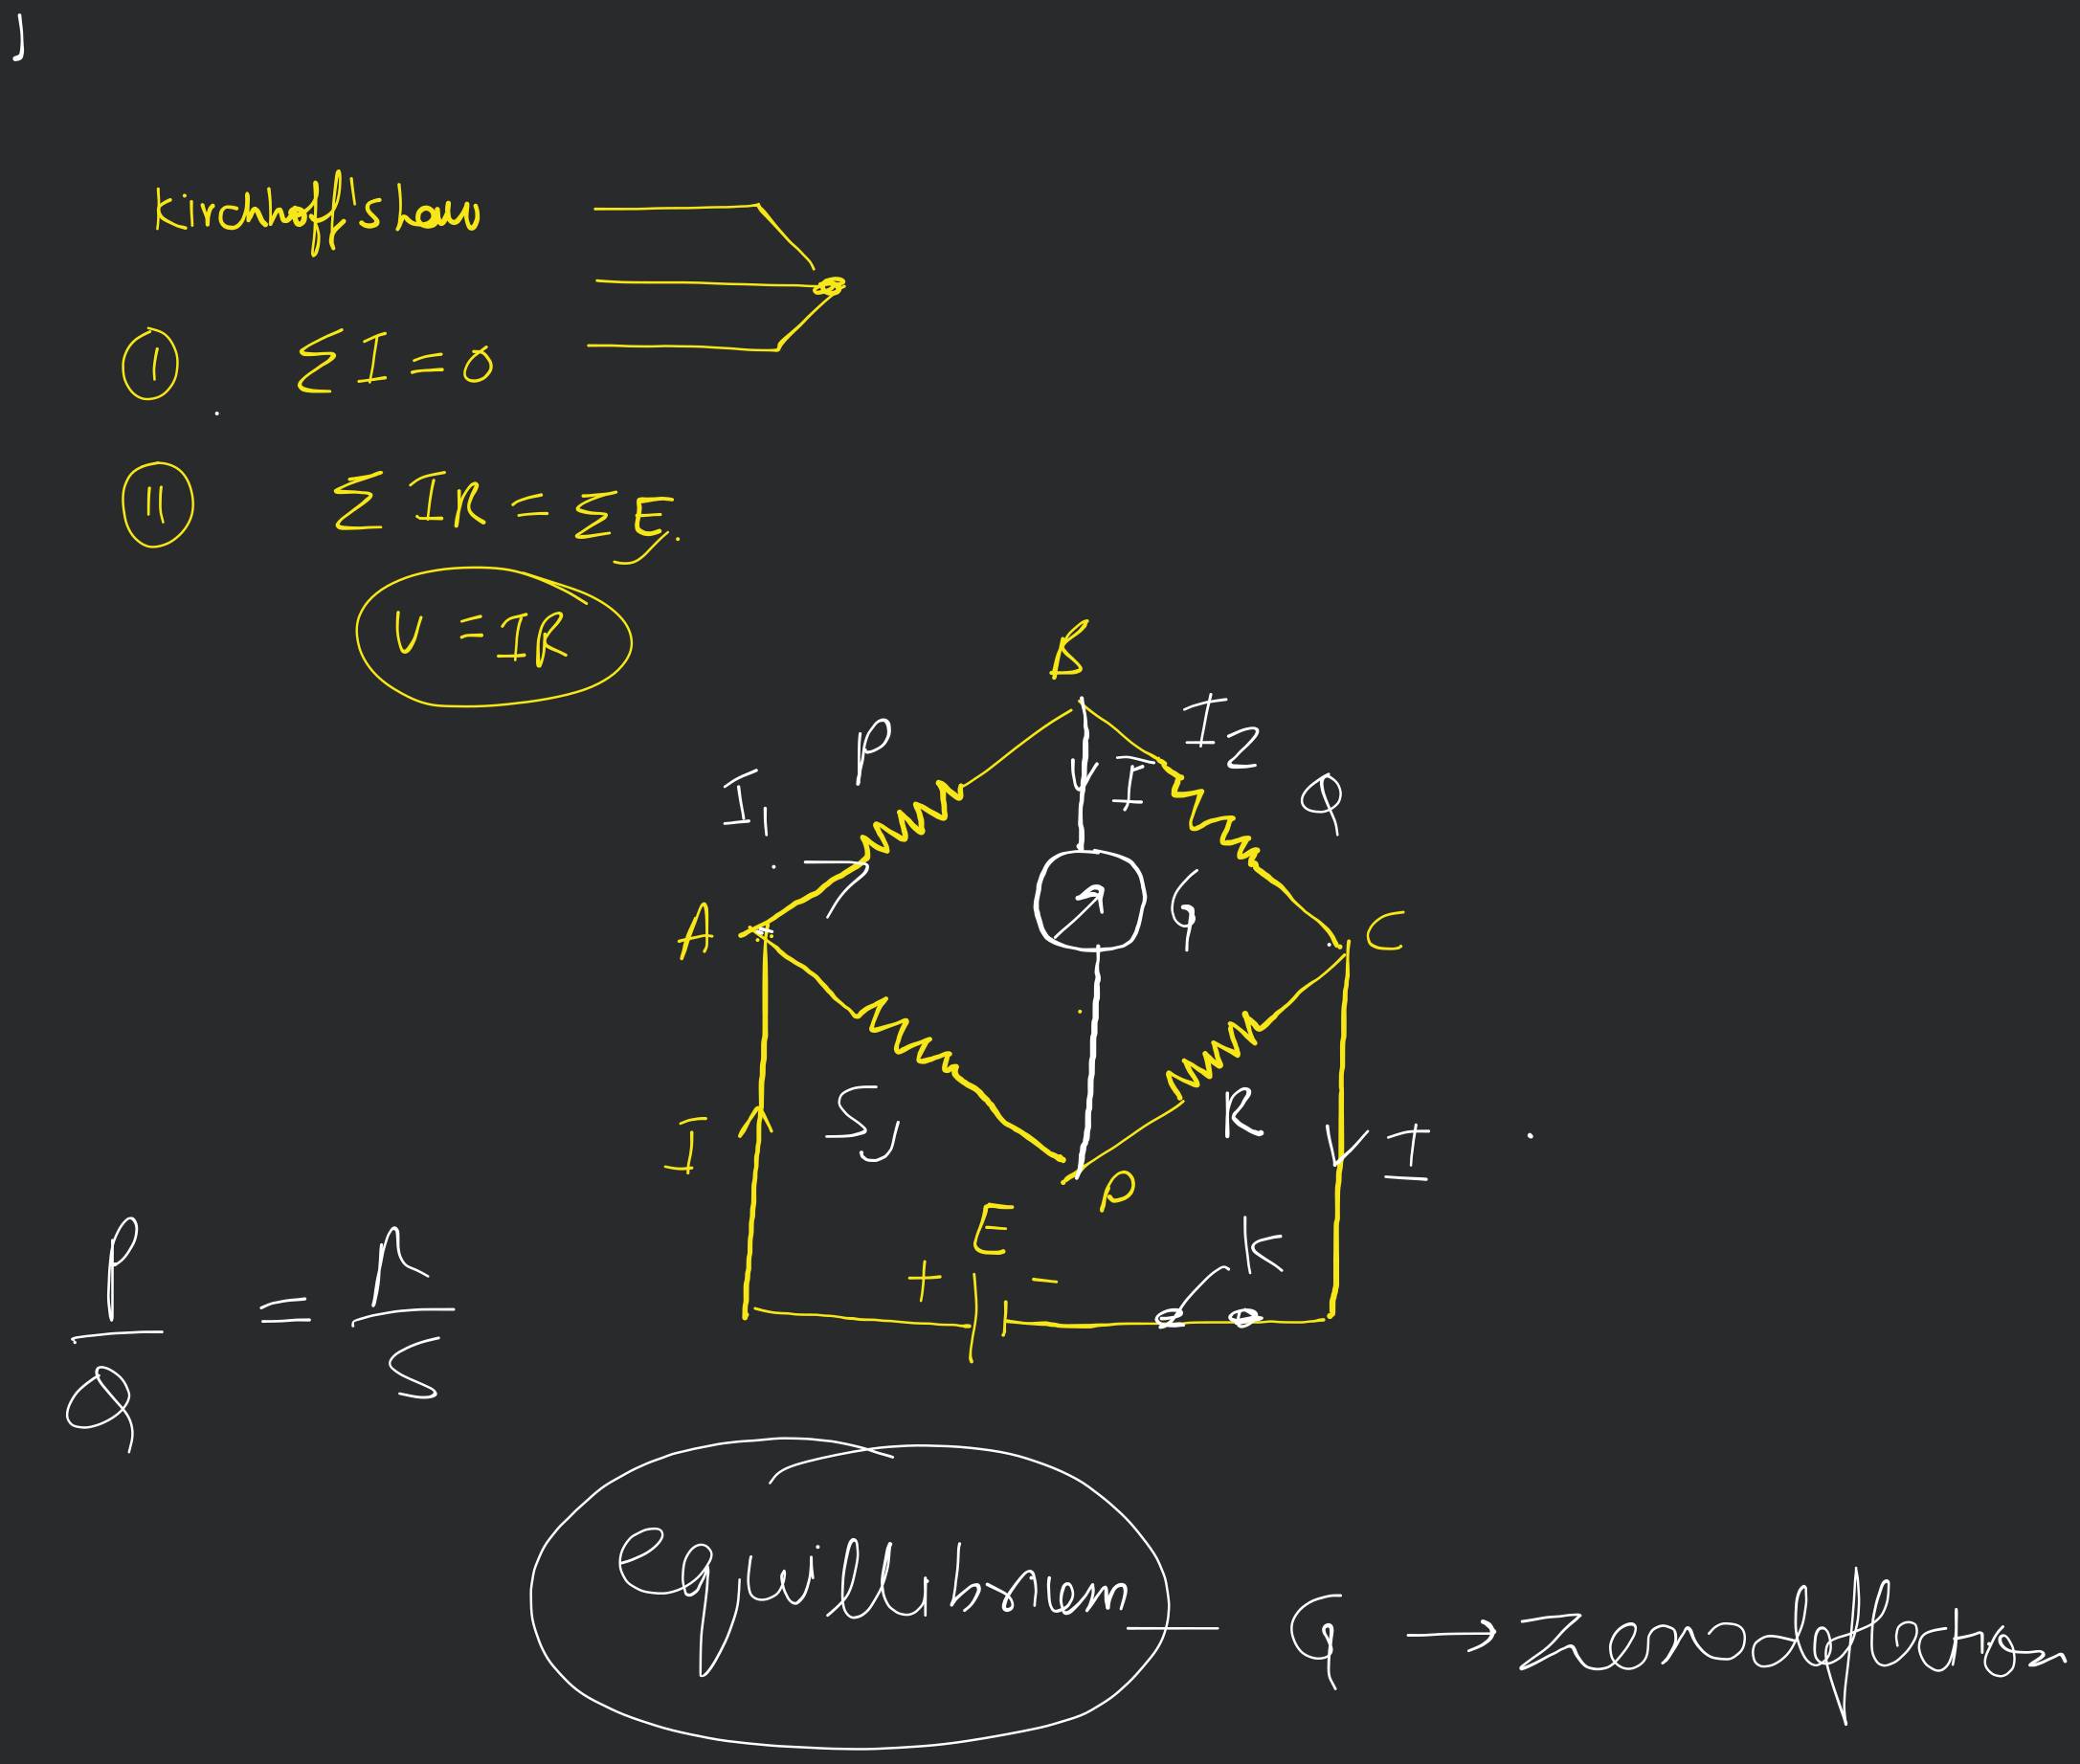 J
Kirchhoff's law
I ΣI = 0
II ΣIR = ΣE.
V = IR
B
P I2
I1 I Q
G
A C
S, R
I I
D
E K
+ -
P/Q = R/S
equillibrium — G → zero deflection